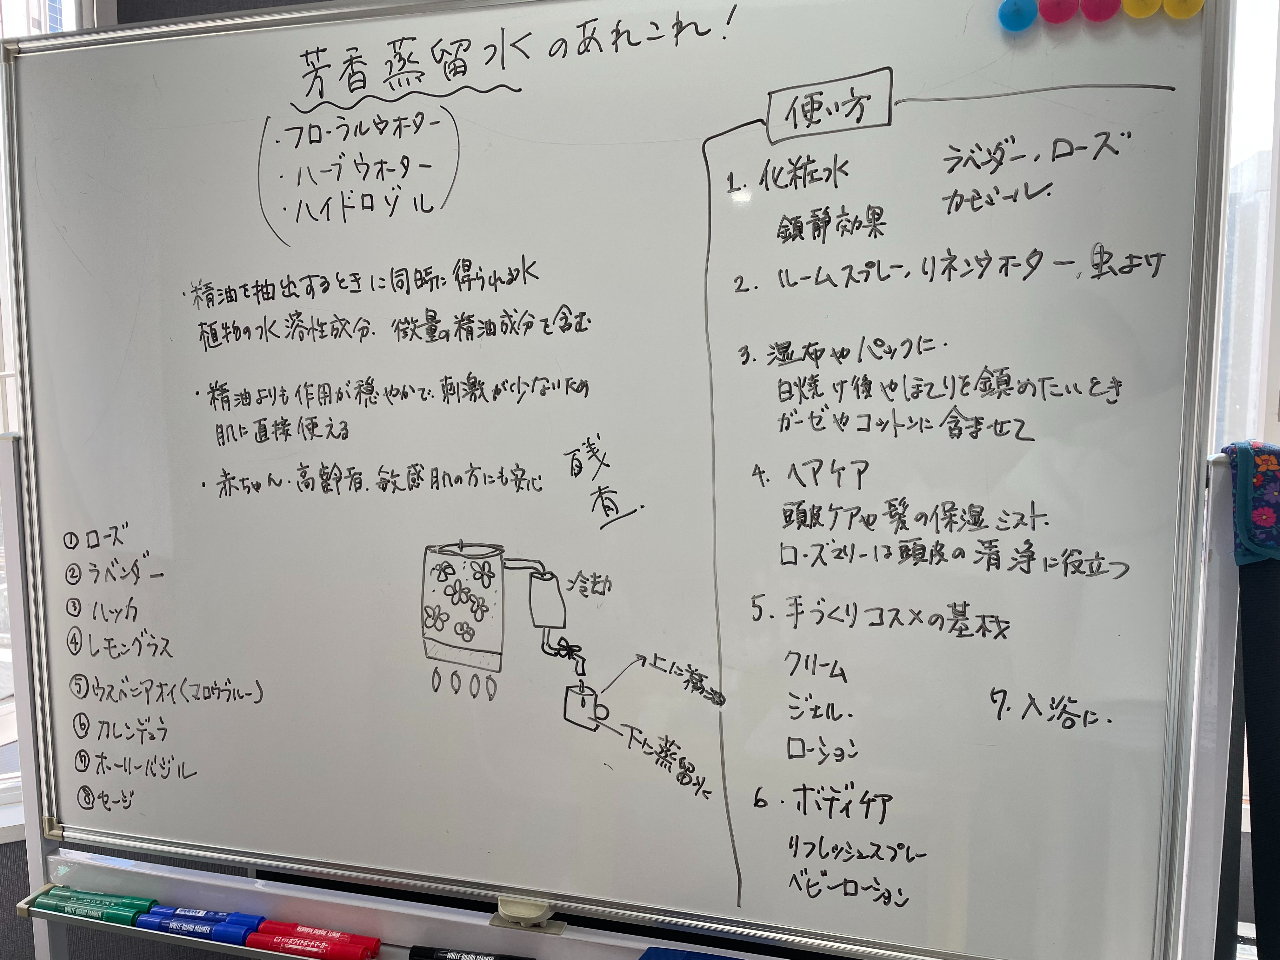 芳香蒸留水のあれこれ!
・フローラルウォーター
・ハーブウォーター
・ハイドロゾル
・精油を抽出するときに同時に得られる水
植物の水溶性成分、微量の精油成分を含む
・精油よりも作用が穏やかで刺激が少ないため
肌に直接使える
・赤ちゃん・高齢者、敏感肌の方にも安心
残
香
①ローズ
②ラベンダー
③ハッカ
④レモングラス
⑤ウスベニアオイ(マロウブルー)
⑥カレンデュラ
⑦ホーリーバジル
⑧セージ
冷却
上に精油
下に蒸留水
使い方
1. 化粧水 ラベンダー、ローズ
カモミール.
鎮静効果
2. ルームスプレー, リネンウォーター, 虫よけ
3. 湿布やパックに.
日焼け後やほてりを鎮めたいとき
ガーゼやコットンに含ませて
4. ヘアケア
頭皮ケアや髪の保湿ミスト.
ローズマリーは頭皮の清浄に役立つ
5. 手づくりコスメの基材
クリーム
ジェル.
ローション
6. ボディケア
リフレッシュスプレー
ベビーローション
7. 入浴に.
WHITE BOARD MARKER